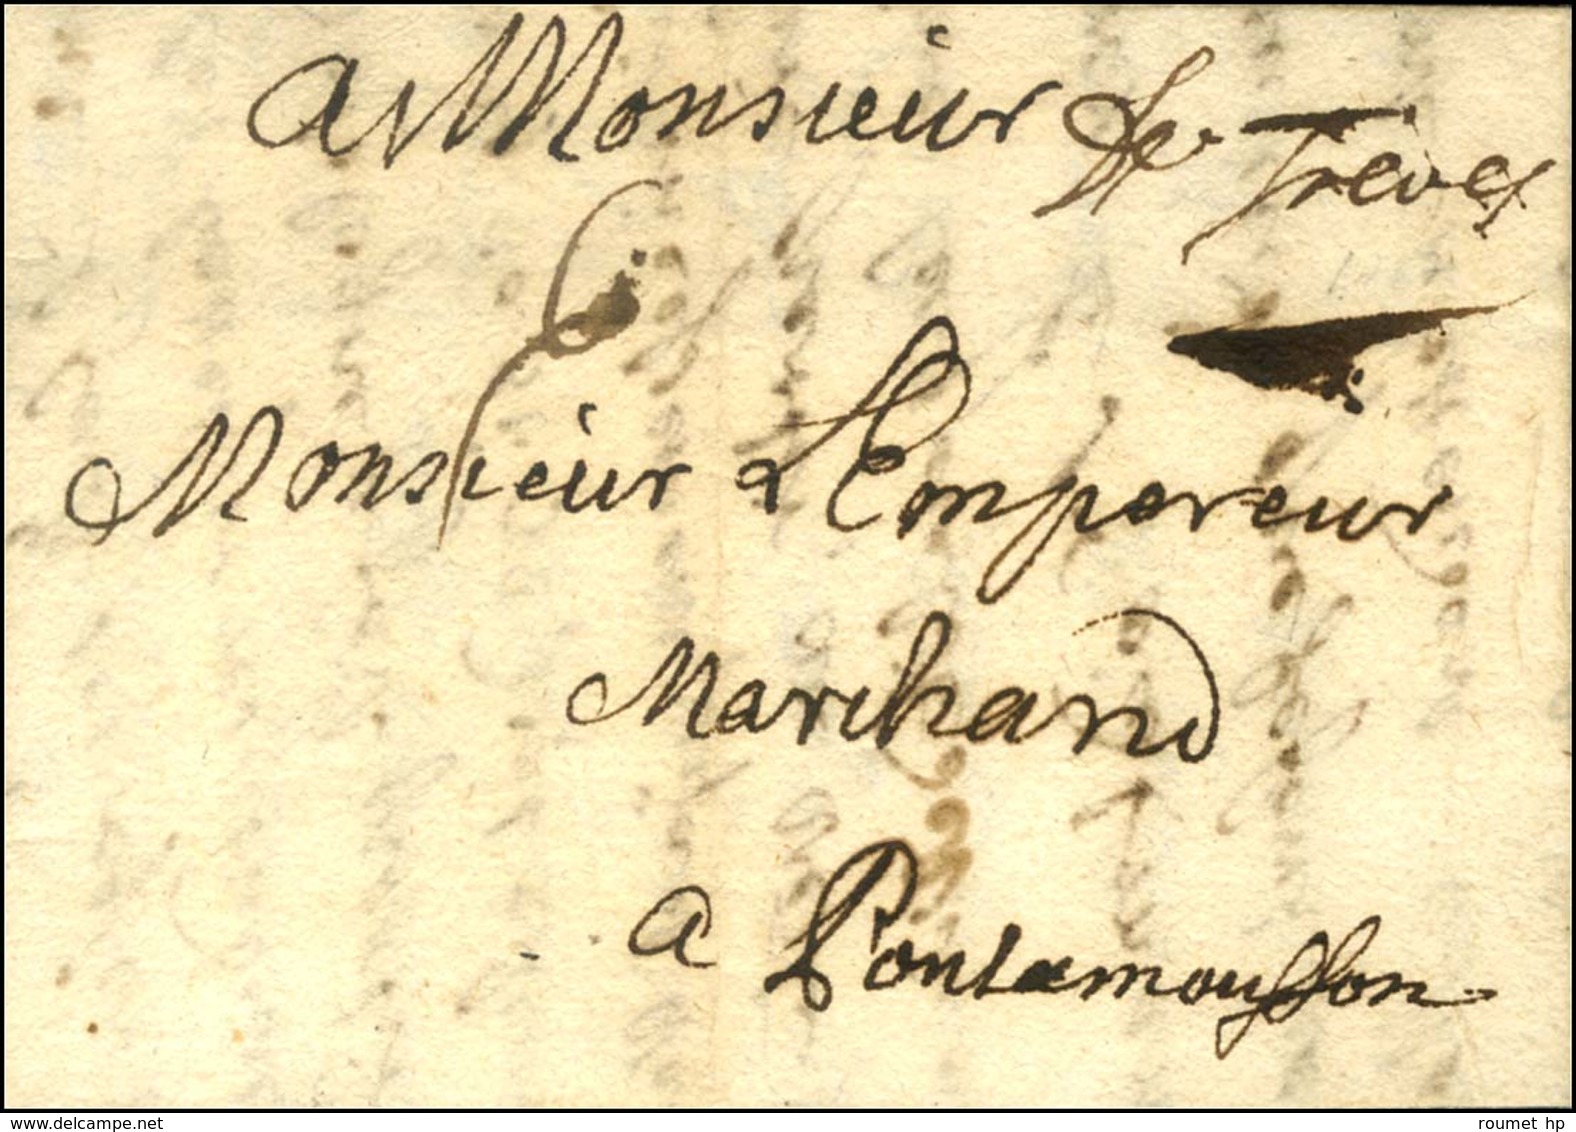 a Monsieur De Treves
Monsieur Lempereur
Marchand
a Pontamousson
delcampe.net
roumet hp